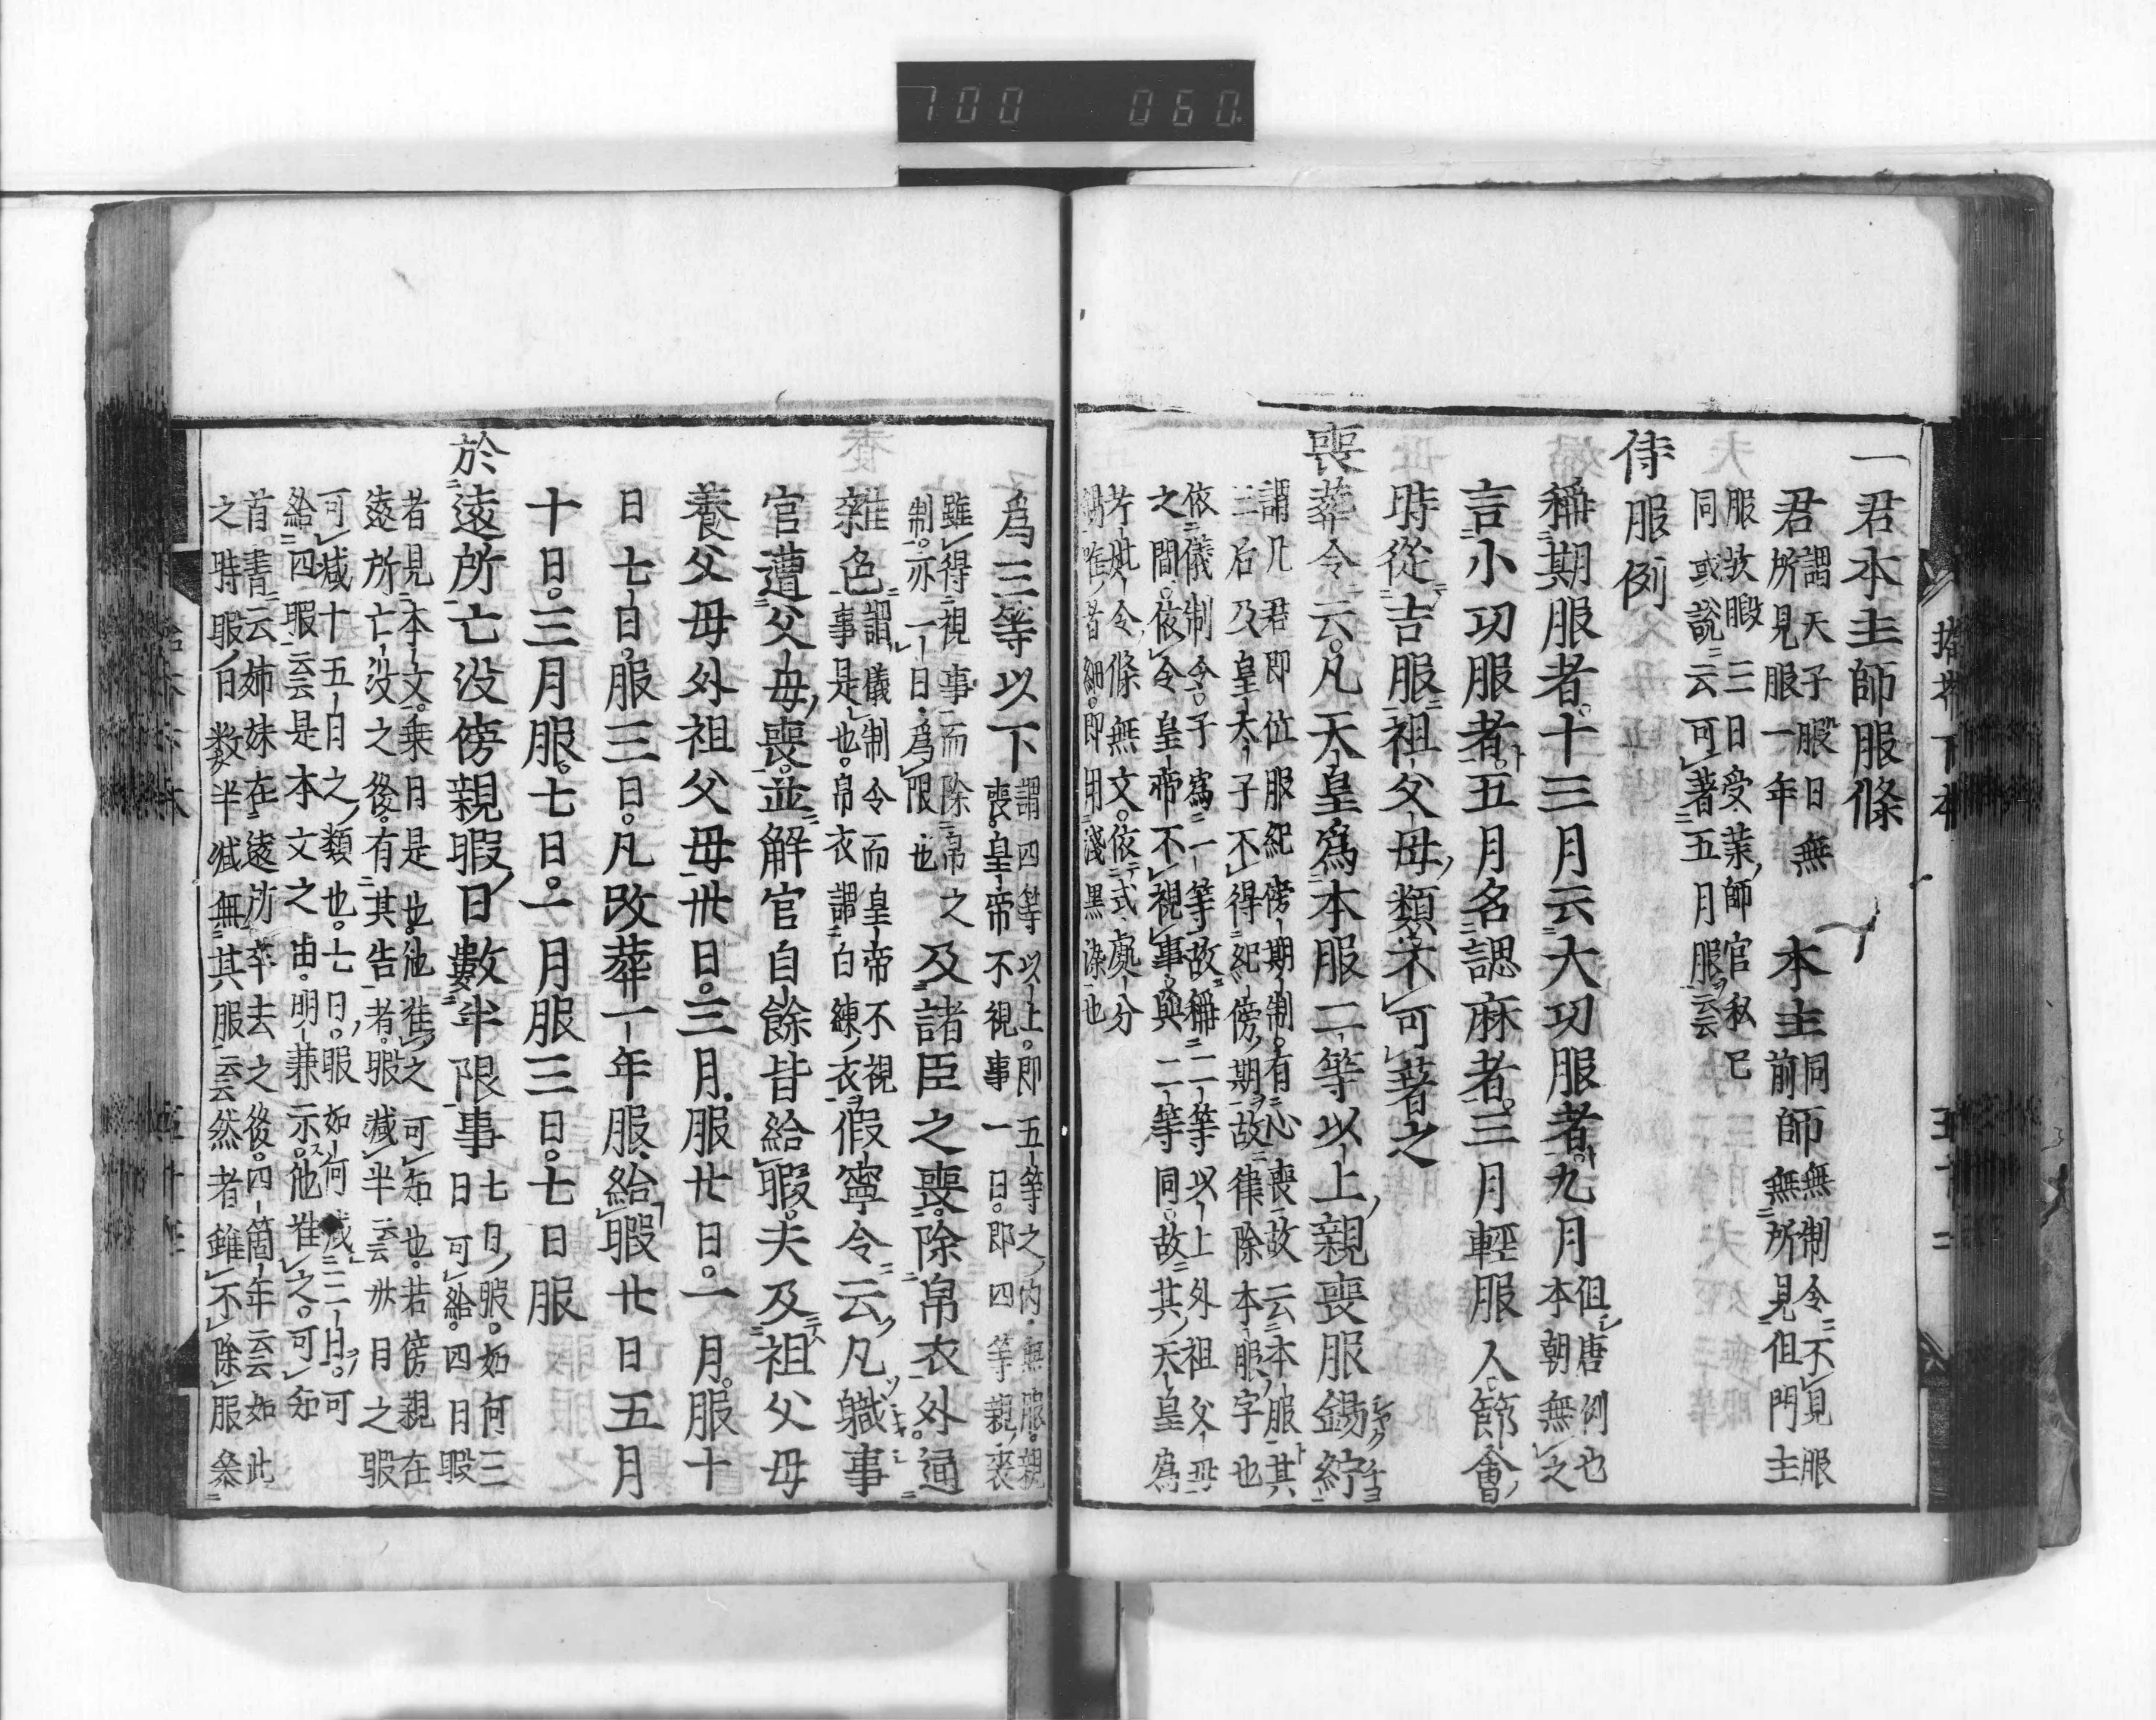 700 060
一君本主師服條
君謂天子服日無
所見服一年
本主同前師無制令不見服
無所見但門主
服故暇三日受業師官私已
同或說云可著五月服云云
侍服例
稱期服者十三月云大功服者九月但唐例也
本朝無之
言小功服者五月名緦麻者三月輕服人節會
時從吉服祖父母類不可著之
喪葬令云凡天皇為本服二等以上親喪服錫紵
謂凡君即位服紀傍期制有心喪故云本服其
三后及皇太子不得紀傍期故律除本服字也
依儀制令子為一等故稱二等以上外祖父母
之間依令皇帝不視事與二等同故其天皇為
令條無文依式處分
為三等以下謂四等以上即五等之內無服親
喪皇帝不視事一日即四等親喪
雖得視事而除帛之
制亦一日為限也
及諸臣之喪除帛衣外通
雜色謂儀制令而皇帝不視
事是也帛衣謂白練衣
假寧令云凡職事
官遭父母喪並解官自餘皆給暇夫及祖父母
養父母外祖父母卅日三月服廿日一月服十
日七日服三日凡改葬一年服給暇廿日五月
十日三月服七日一月服三日七日服
於遠所亡沒傍親暇日數半限事七日暇如何三
日可給四日暇
者見本文乘日是也他准之可知也若傍親在
遠所亡沒之後有其告者暇減半云云卅日之暇
可減十五日之類也七日暇如何減三日可
給四暇云云是本文之由明兼示他准之可知
首書云姉妹在遠所卒去之後四箇年云云如此
之時暇日数半減無其服云云然者雖不除服